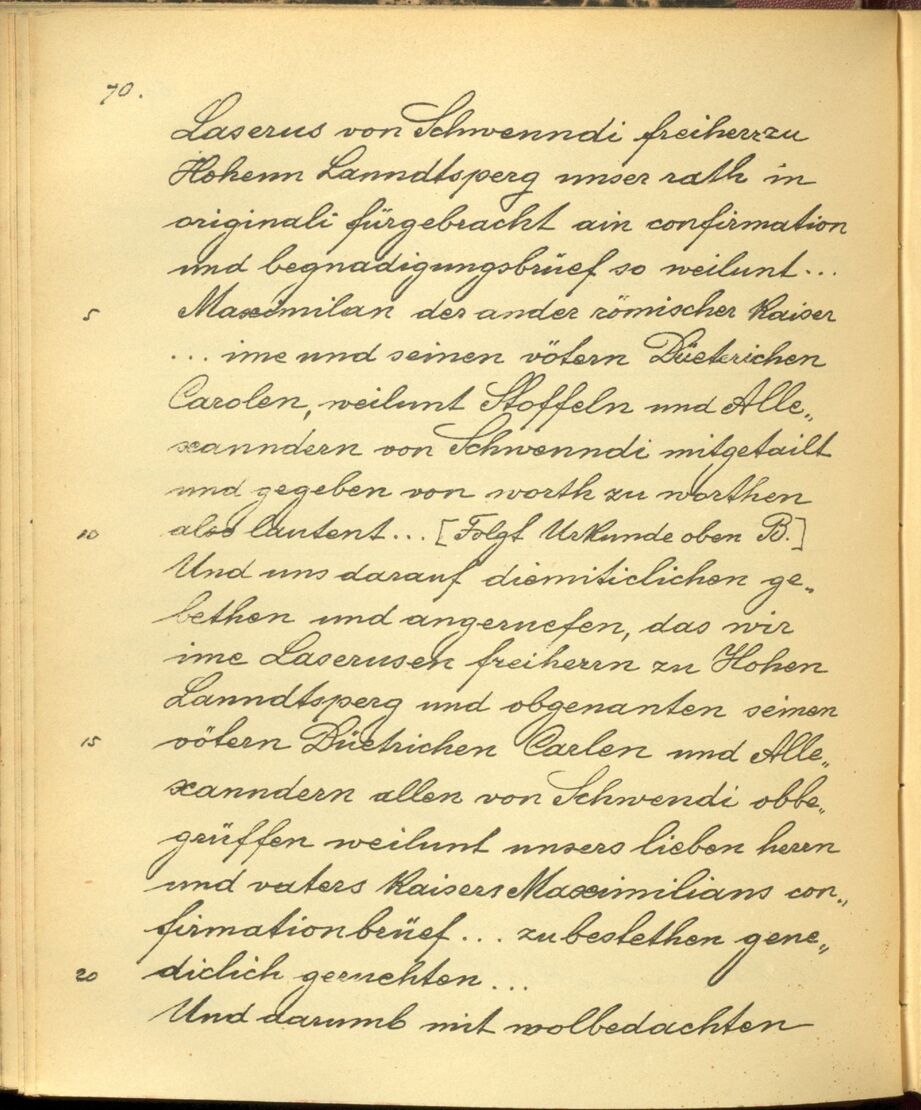 70.
Laserus von Schwenndi freiherr zu
Hohenn Lanndtsperg unser rath in
originali fürgebracht ain confirmation
und begnadigungsbrüef so weilunt...
5 Maximilan der ander römischer Kaiser
... ime und seinen vötern Düeterichen
Carolen, weilunt Stoffeln und Alle„
xanndern von Schwenndi mitgetailt
und gegeben von worth zu worthen
10 also lautent... [Folgt Urkunde oben B.]
Und uns darauf diemiticlichen ge„
bethen und angeruefen, das wir
ime Laserusen freiherrn zu Hohen
Lanndtsperg und obgenanten seinen
15 vötern Düetrichen Carlen und Alle„
xanndern allen von Schwendi obbe„
grüffen weilunt unsers lieben herrn
und vaters Kaisers Maximilians con„
firmationbrüef... zu bestethen gene„
20 diclich geruchten...
Und darumb mit wolbedachten